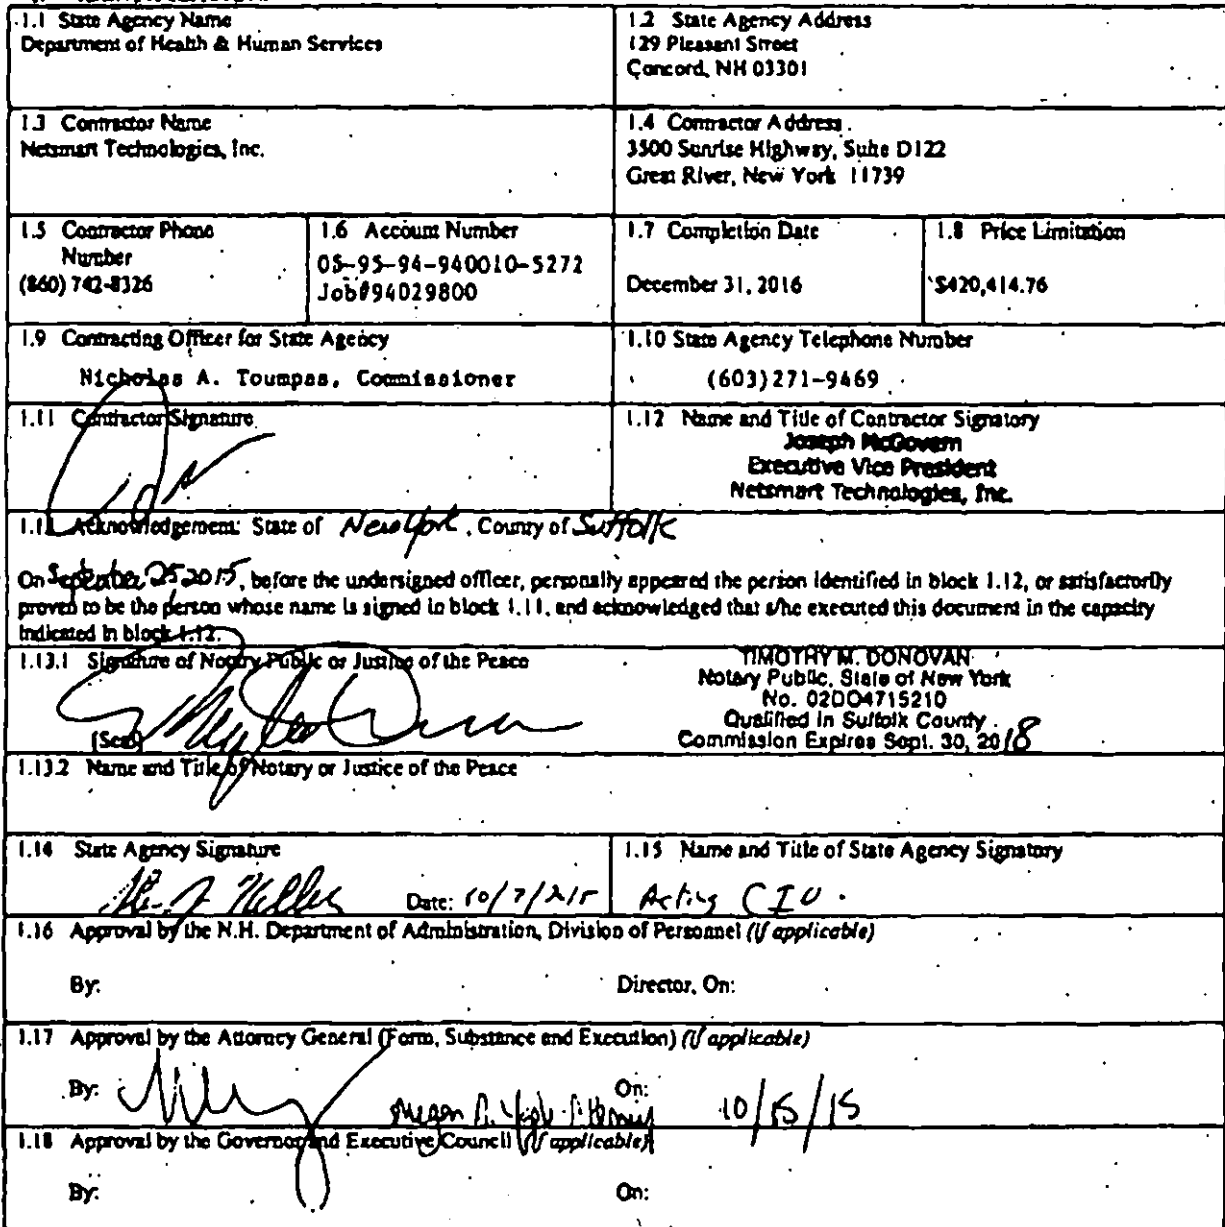 1.1 State Agency Name
Department of Health & Human Services
1.2 State Agency Address
129 Pleasant Street
Concord, NH 03301
1.3 Contractor Name
Netsmart Technologies, Inc.
1.4 Contractor Address
3500 Sunrise Highway, Suite D122
Great River, New York 11739
1.5 Contractor Phone
Number
(860) 742-8326
1.6 Account Number
05-95-94-940010-5272
Job#94029800
1.7 Completion Date
December 31, 2016
1.8 Price Limitation
$420,414.76
1.9 Contracting Officer for State Agency
Nicholas A. Toumpas, Commissioner
1.10 State Agency Telephone Number
(603)271-9469
1.11 Contractor Signature
1.12 Name and Title of Contractor Signatory
Joseph McGovern
Executive Vice President
Netsmart Technologies, Inc.
1.13 Acknowledgement: State of New York, County of Suffolk
On September 25 2015, before the undersigned officer, personally appeared the person identified in block 1.12, or satisfactorily
proven to be the person whose name is signed in block 1.11, and acknowledged that s/he executed this document in the capacity
indicated in block 1.12.
1.13.1 Signature of Notary Public or Justice of the Peace
[Seal]
TIMOTHY M. DONOVAN
Notary Public, State of New York
No. 02DO4715210
Qualified in Suffolk County
Commission Expires Sept. 30, 2018
1.13.2 Name and Title of Notary or Justice of the Peace
1.14 State Agency Signature
Date: 10/7/2015
1.15 Name and Title of State Agency Signatory
Acting CIO.
1.16 Approval by the N.H. Department of Administration, Division of Personnel (if applicable)
By: Director, On:
1.17 Approval by the Attorney General (Form, Substance and Execution) (if applicable)
By: On: 10/15/15
1.18 Approval by the Governor and Executive Council (if applicable)
By: On: